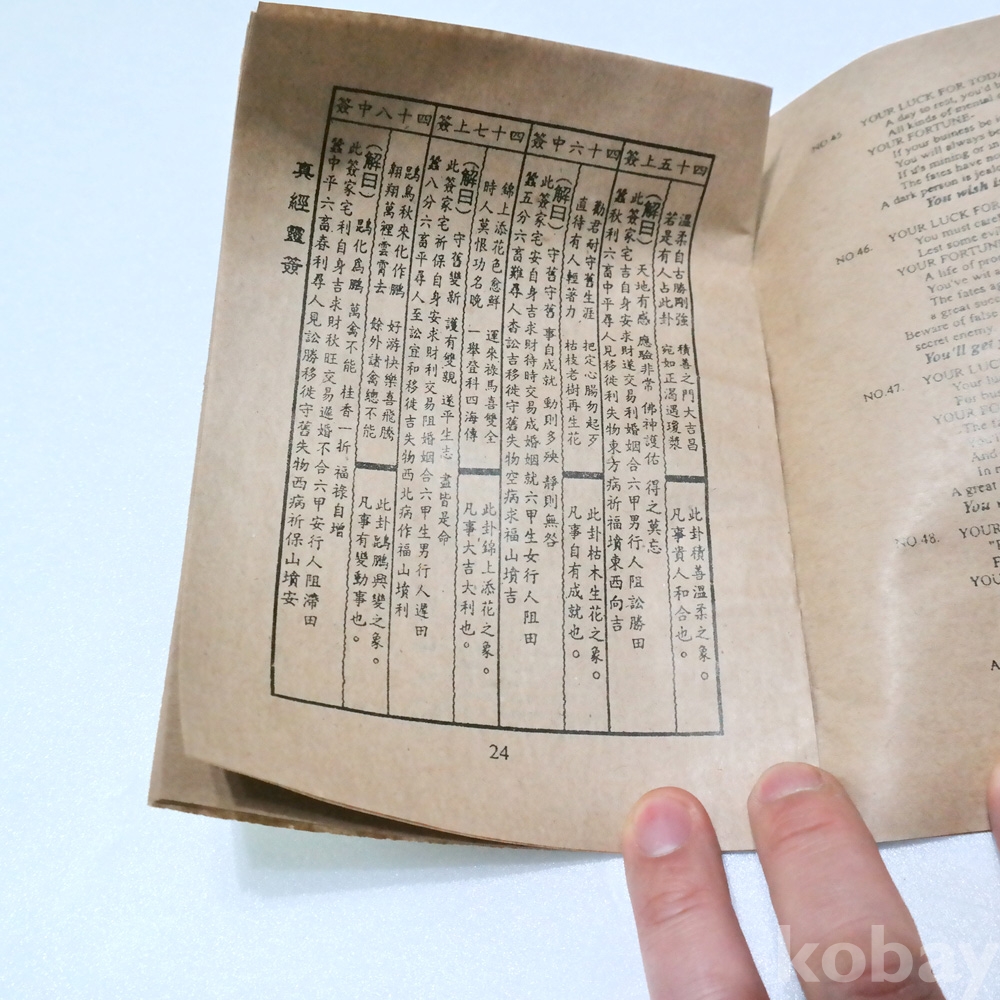 四十五上簽
溫柔自古勝剛強 積善之門大吉昌
若是有人占此卦 宛如正渴遇瓊漿
此卦積善溫柔之象。
凡事貴人和合也。
(解曰) 天地有感 應驗非常 佛神護佑 得之莫忘
此簽家宅吉自身安求財遂交易利婚姻合六甲男行人阻訟勝田
蠶秋利六畜中平尋人見移徙利失物東方病祈福墳東西向吉
四十六中簽
勸君耐守舊生涯 把定心腸勿起歹
直待有人輕著力 枯枝老樹再生花
此卦枯木生花之象。
凡事自有成就也。
(解曰) 守舊守舊 事自成就 動則多殃 靜則無咎
此簽家宅安自身吉求財待時交易成婚姻就六甲生女行人阻田
蠶五分六畜難尋人杳訟吉移徙守舊失物空病求福山墳吉
四十七上簽
錦上添花色愈鮮 運來祿馬喜雙全
時人莫恨功名晚 一舉登科四海傳
此卦錦上添花之象。
凡事大吉大利也。
(解曰) 守舊變新 護有雙親 遂平生志 盡皆是命
此簽家宅祈保自身安求財利交易阻婚姻合六甲生男行人遲田
蠶八分六畜平尋人至訟宜和移徙吉失物西北病作福山墳利
四十八中簽
鵾鳥秋來化作鵬 好游快樂喜飛騰
翱翔萬裡雲霄去 餘外諸禽總不能
此卦鵾鵬興變之象。
凡事有變動事也。
(解曰) 鵾化爲鵬 萬禽不能 桂香一折 福祿自增
此簽家宅利自身吉求財秋旺交易遲婚不合六甲安行人阻滯田
蠶中平六畜春利尋人見訟勝移徙守舊失物西病祈保山墳安
真經靈簽
24
NO.45 YOUR LUCK FOR TODA
A day to rest, you'd b
All kinds of mental
YOUR FORTUNE-
If your buiness be
You will always be
If it's mining or in
The fates have no
A dark person is jeal
You wish i
NO.46. YOUR LUCK FOR
You must care
Lest some evi
YOUR FORTUN
A life of pro
You've wit a
The fates a
a great succ
Beware of false
secret enemy
You'll get
NO.47. YOUR LUCK F
Your lu
For bu
YOUR FO
The f
You
And
In
A great
You
NO.48. YOUR
YO